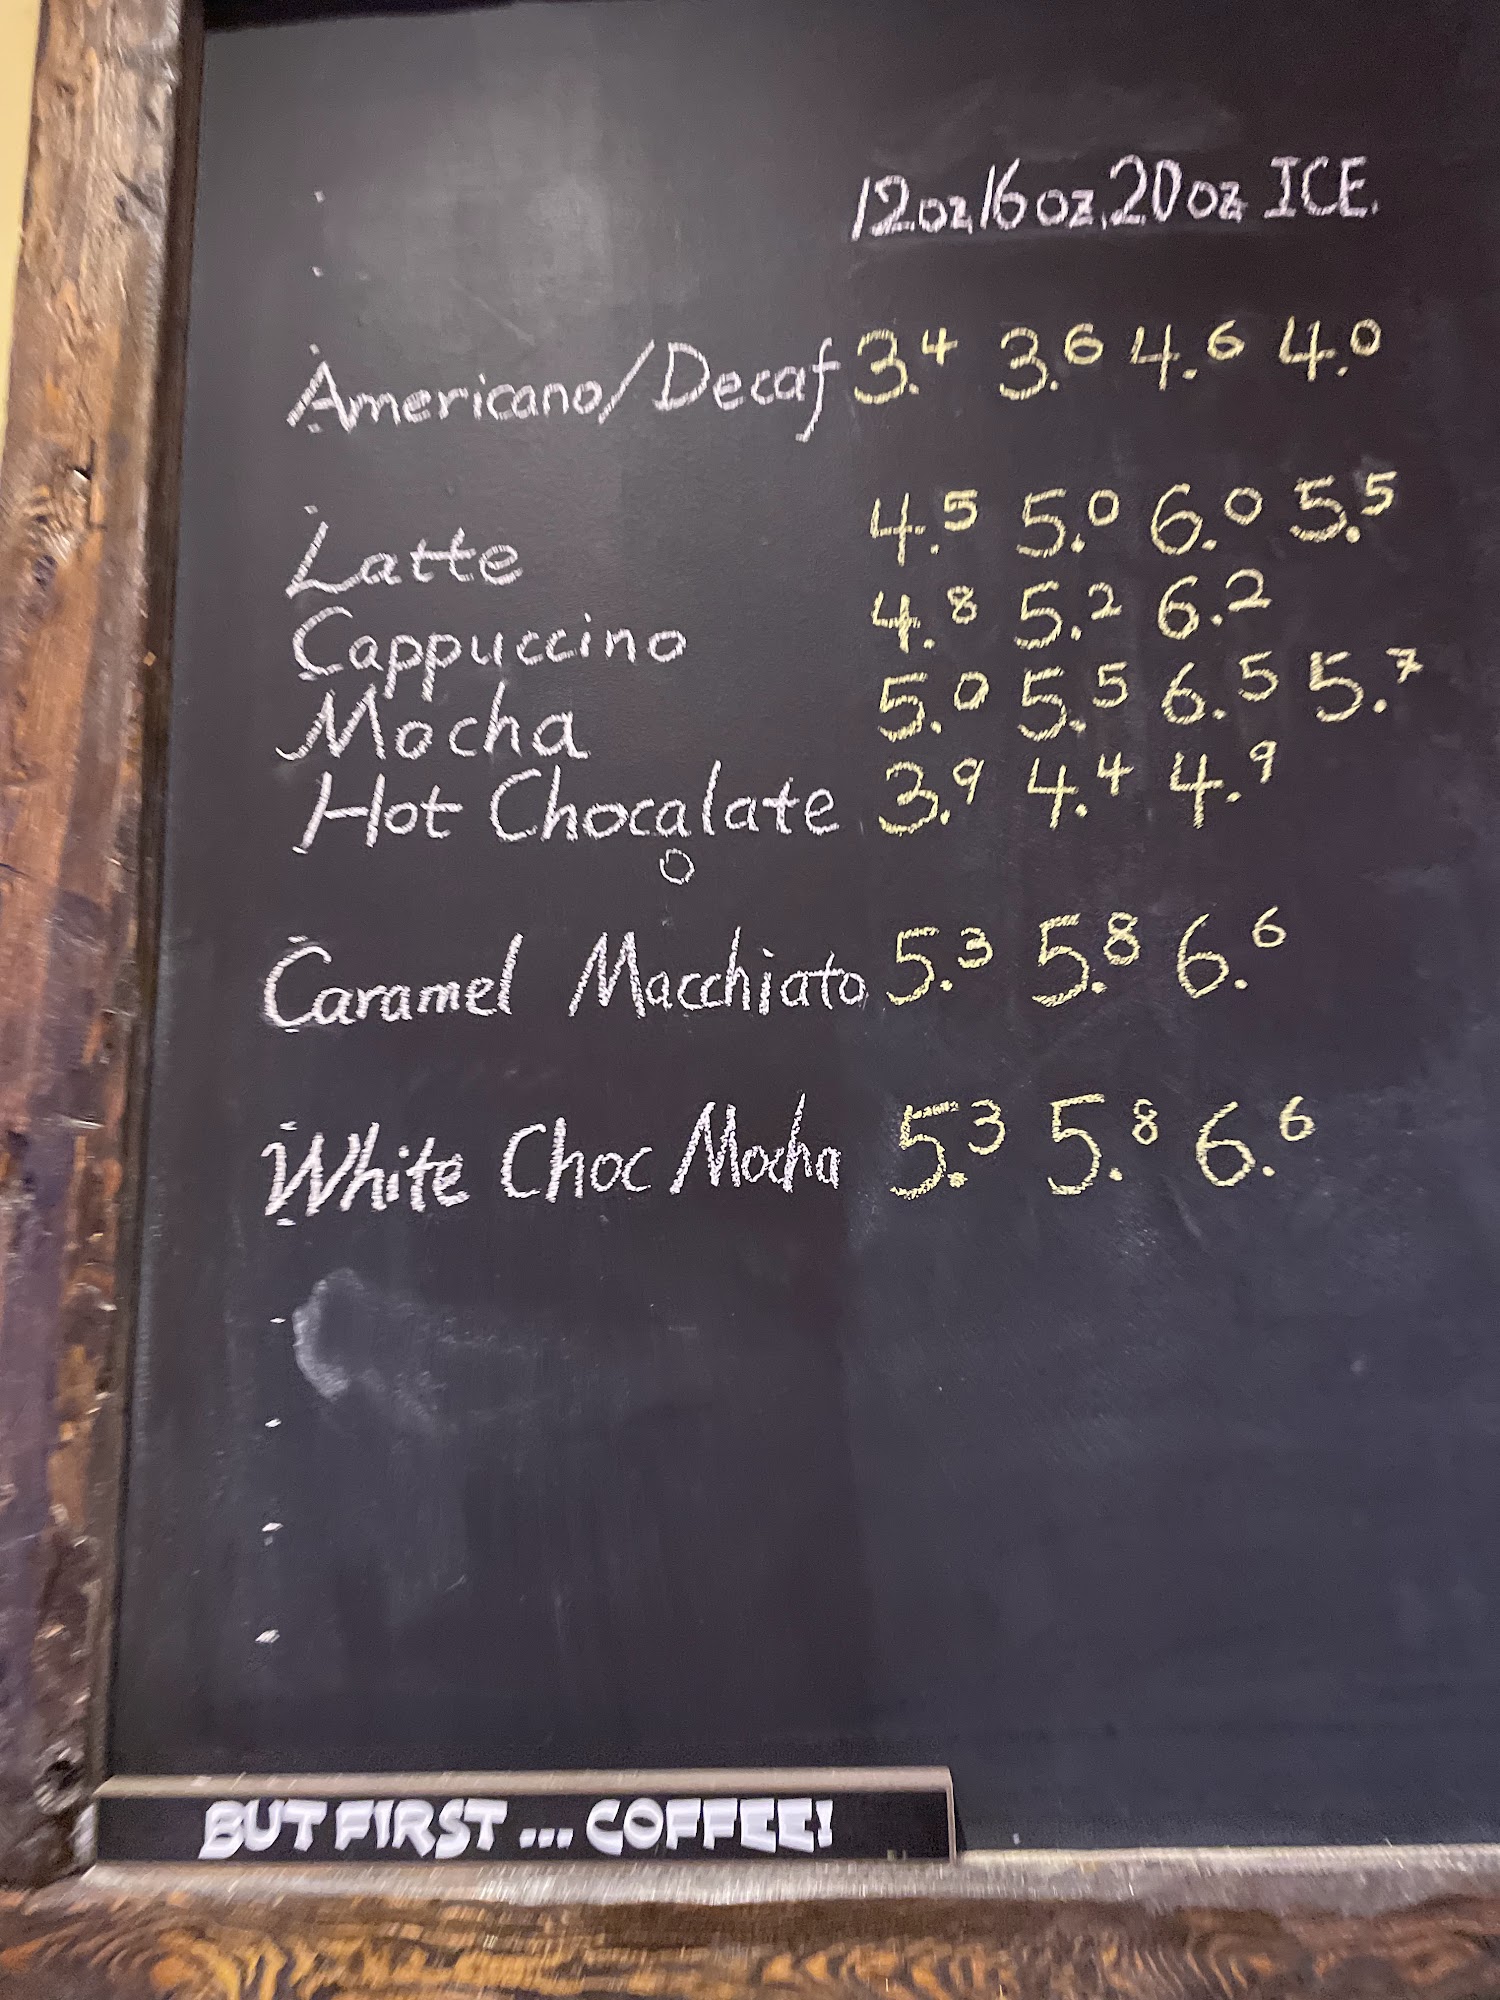 12oz, 16oz, 20oz ICE.
Americano/Decaf 3.4 3.6 4.6 4.0
Latte 4.5 5.0 6.0 5.5
Cappuccino 4.8 5.2 6.2
Mocha 5.0 5.5 6.5 5.7
Hot Chocalate 3.9 4.4 4.9
o
Caramel Macchiato 5.3 5.8 6.6
White Choc Mocha 5.3 5.8 6.6
BUT FIRST ... COFFEE!